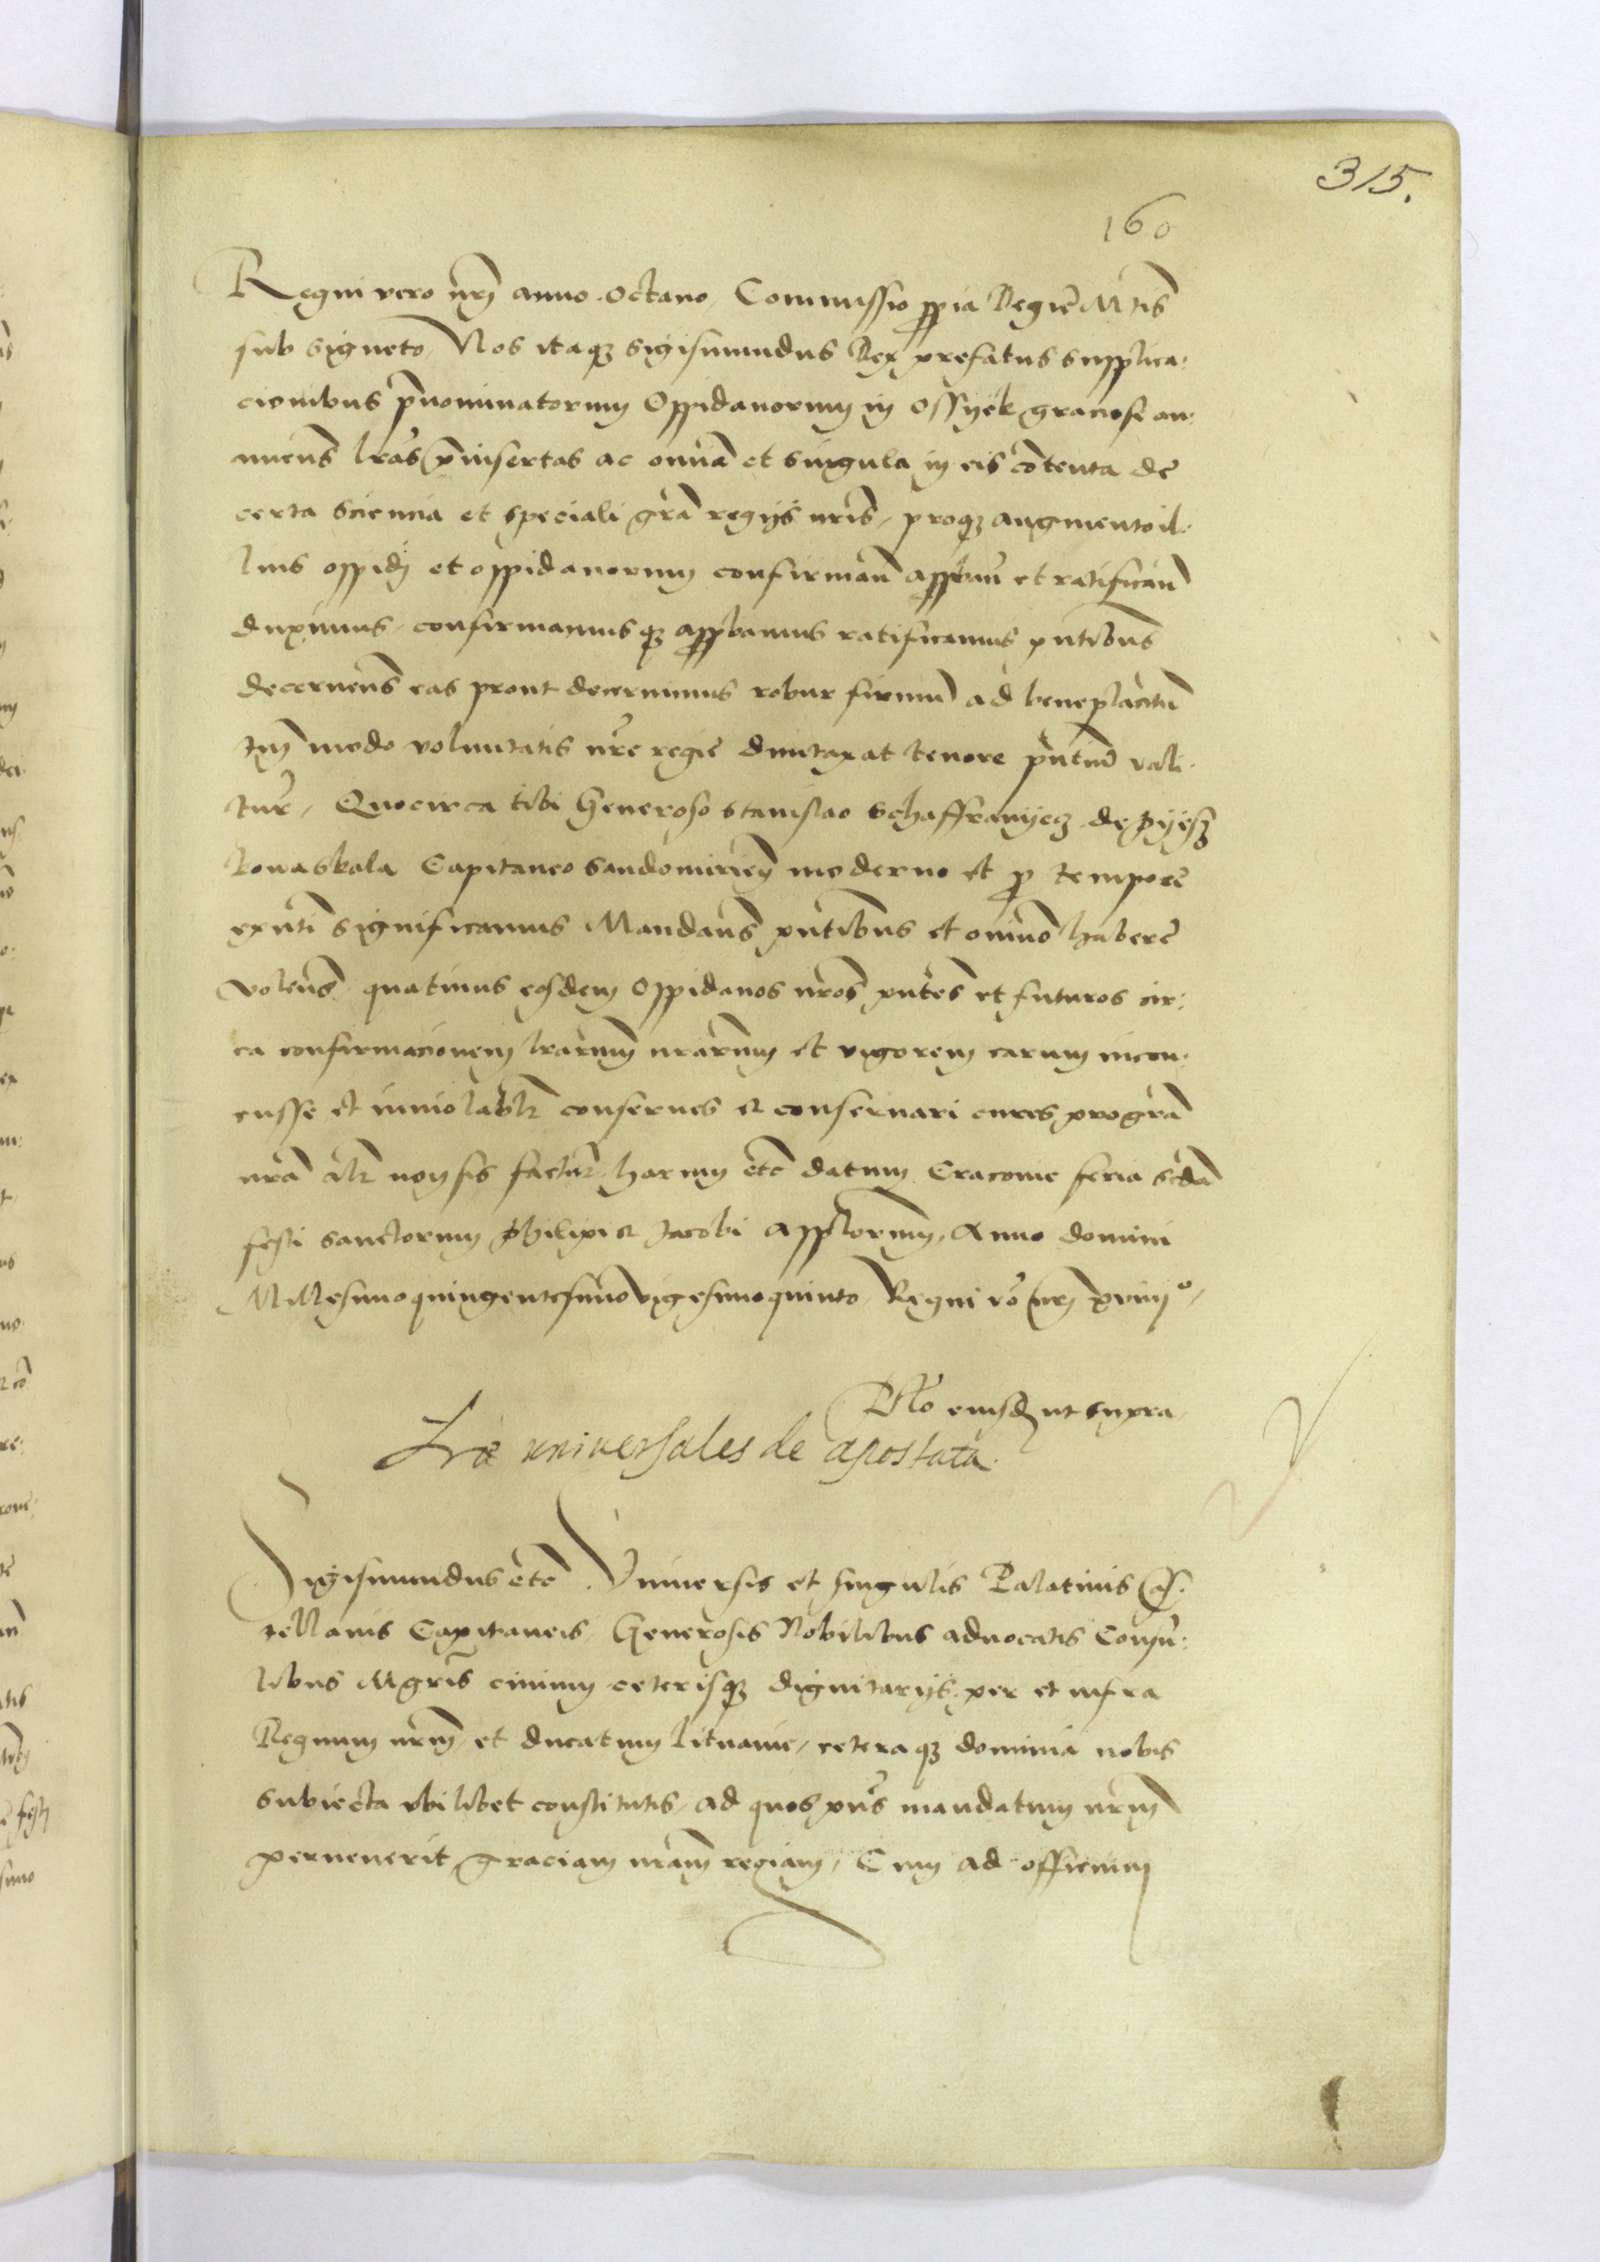 315.
160
Regni vero nrj anno octauo, Commissio ppia Regie Mtis
sub signeto, Nos itaqz Sigismundus Rex prefatus supplica:
cionibus pnominatorum Oppidanorum in Ossyek graciose an:
nuens lras pinsertas ac omnia et singula in eis contenta de
certa sciencia et speciali gra regijs nris, proqz augmento il:
lius oppidj et oppidanorum confirman appban et ratifican
duximus, confirmamusqz appbamus ratificamus pntibus
decernens eas prout decernimus robur firmum ad beneplacitum
tm modo voluntatis nre regie duntaxat tenore pntium vali:
tur, Quocirca tibi Generoso Stanislao Schaffranyecz de Pyesz
kowaskala Capitaneo Sandomirien moderno et p tempore
exnti significamus Mandans pntibus et omino habere
volens, quatinus eosdem Oppidanos nros pntes et futuros cir:
ca confirmacionem lrarum nrarum et vigorem earum incon:
cusse et inuiolablr conserues et conseruari cures pro gra
nra alr non sis factur, harum etc datum Cracouie feria scda
festi sanctorum Philipi et Jacobi Appstorum, Anno domini
Millesimoquingentesimovigesimoquinto, Regni vo nrj xviiij°,
Rlo eiusdz ut supra,
Lrae universales de apostata.
Sigismundus etc Vniuersis et singulis Palatinis Cas:
tellanis Capitaneis, Generosis Nobilibus aduocatis Consu:
libus Mgris ciuium ceterisqz dignitarijs, per et infra
Regnum nrm, et ducatum Lituanie, ceteraqz dominia nobis
subiecta vbilibet constitutis, ad quos pns mandatum nrm
peruenerit graciam nram regiam, Cum ad officium